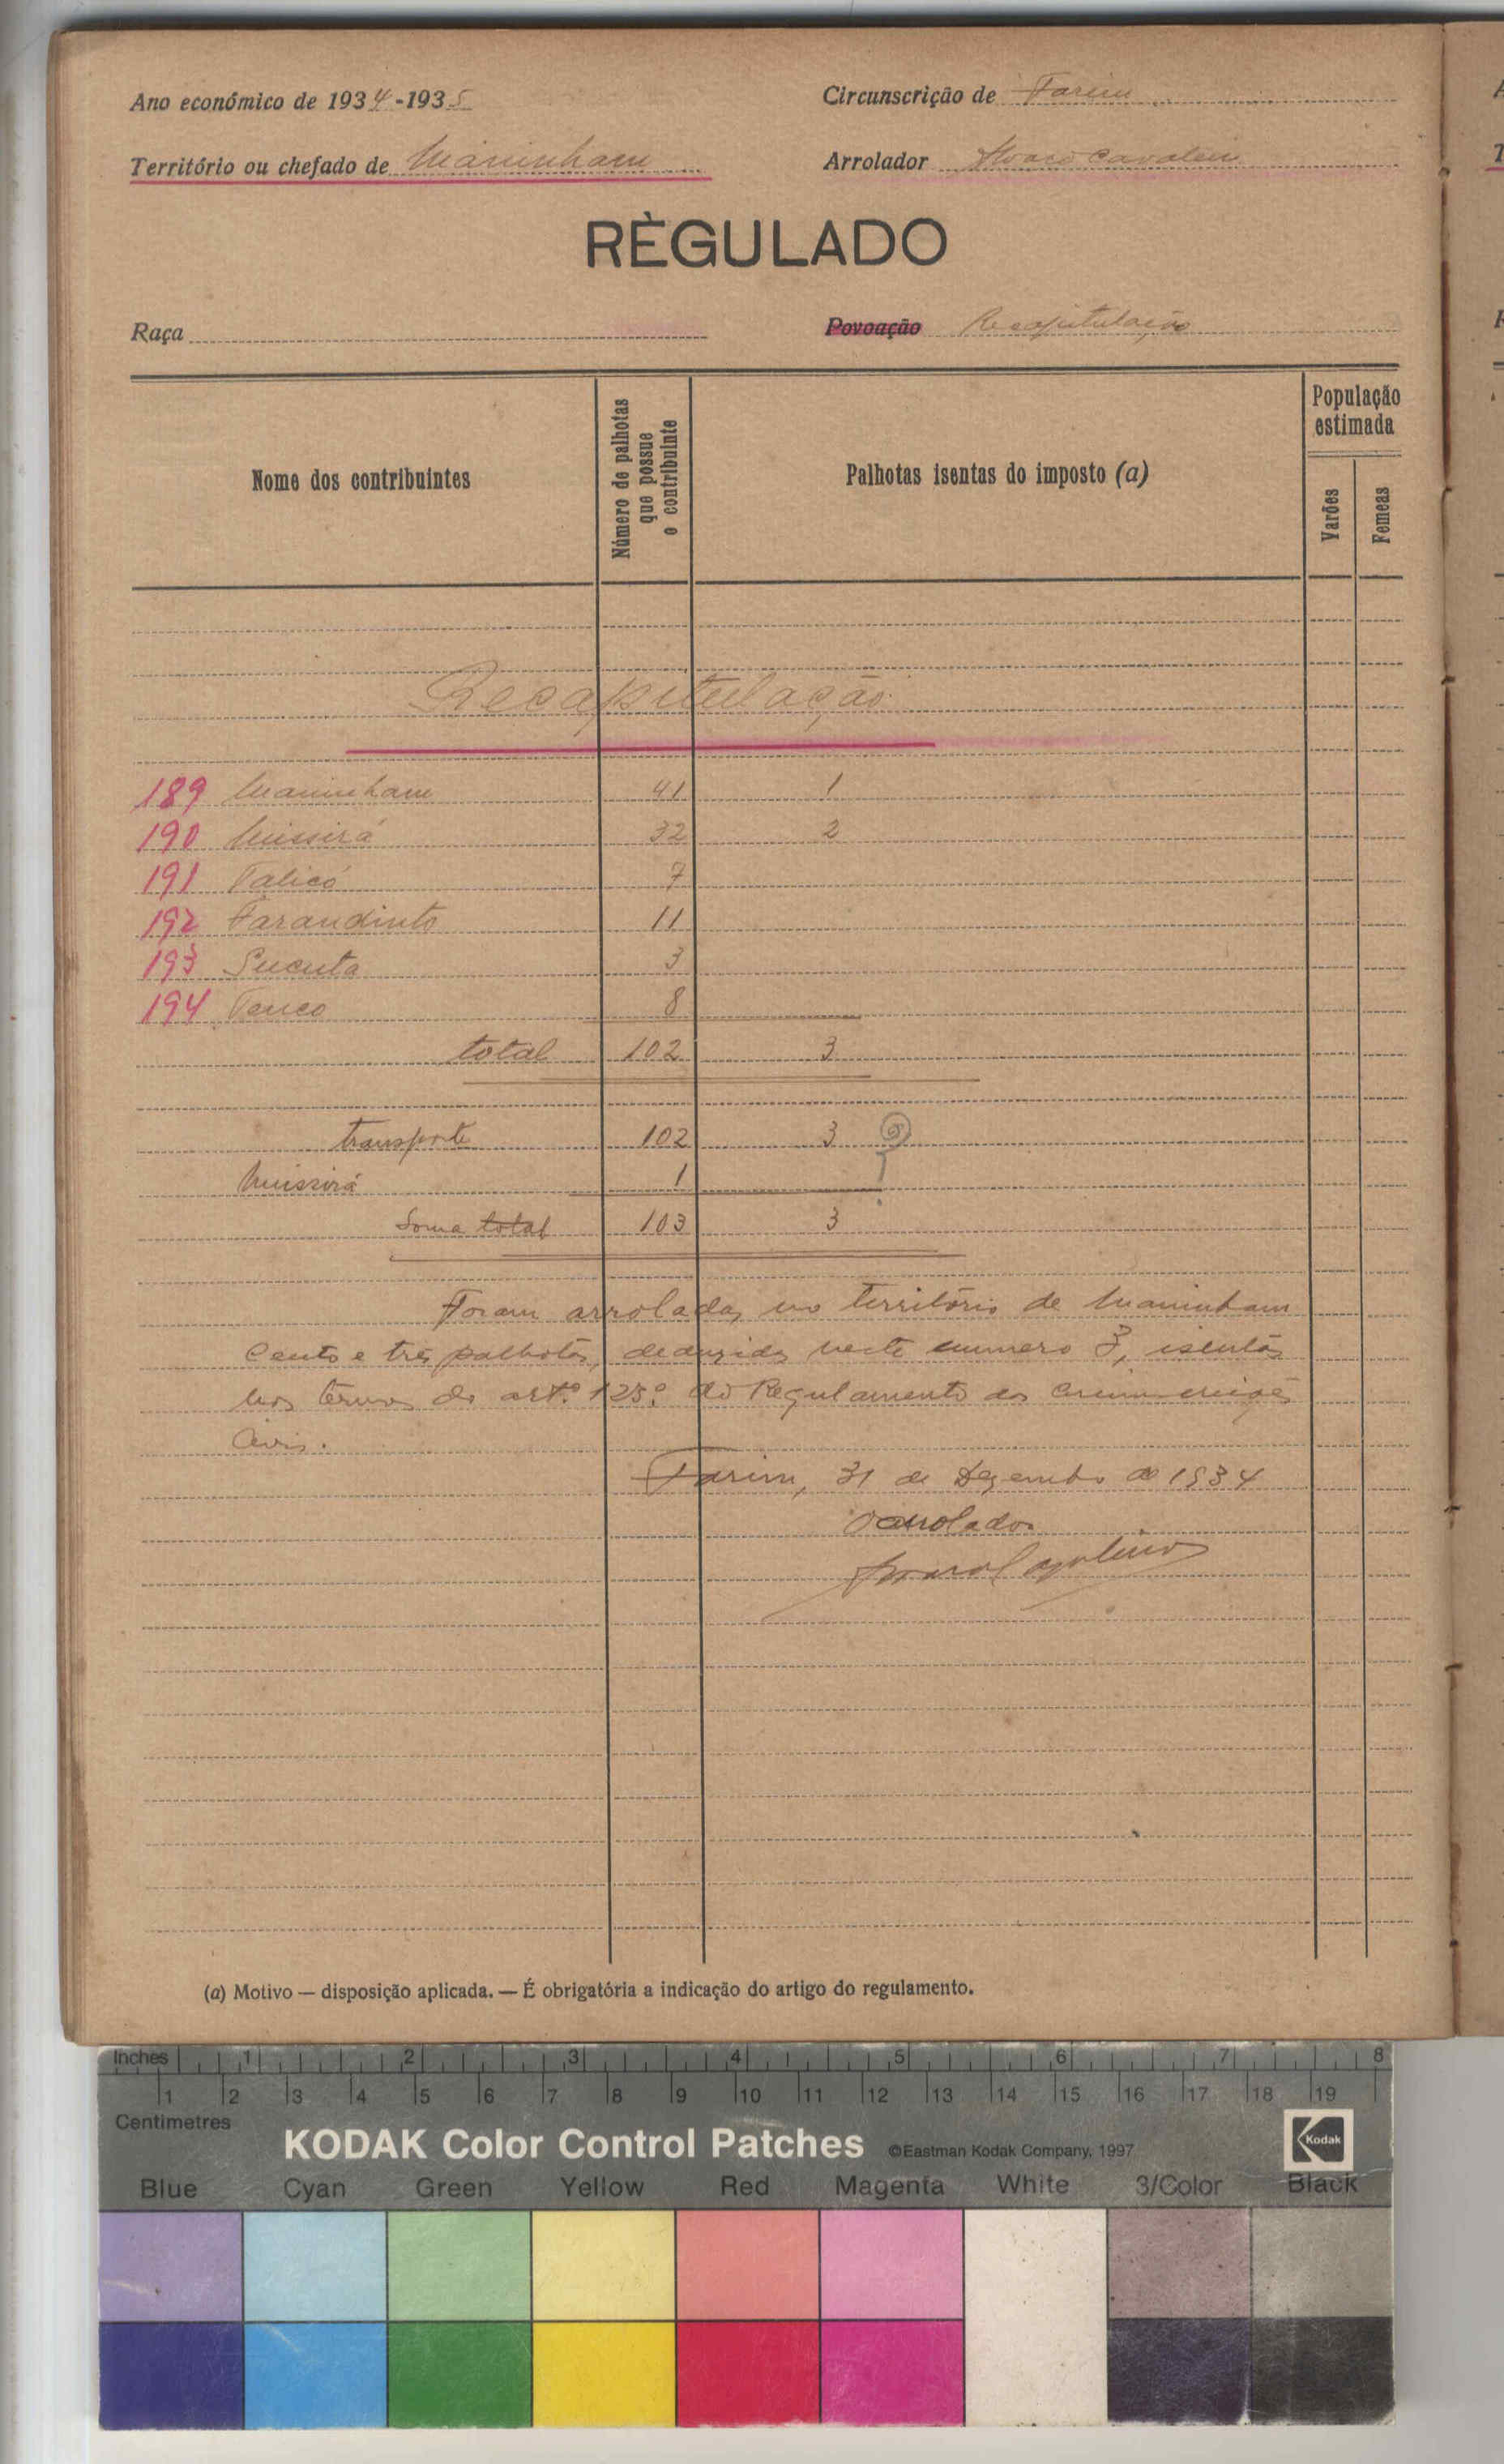 Ano económico de 1934-1935
Circunscrição de Farim
Território ou chefado de Maninham
Arrolador
RÈGULADO
Raça
Povoação Recapitulação
Nome dos contribuintes
Número de palhotas que possue o contribuinte
Palhotas isentas do imposto (a)
População estimada
Varões
Femeas
Recapitulação
189 Maninham 41 1
190 Missirá 32 2
191 Talicó 7
192 Farandinto 11
193 Sucuta 3
194 Tenco 8
total 102 3
transporte 102 3
Missirá 1
Soma total 103 3
Foram arroladas no território de Maninham
cento e três palhotas, deduzidas neste numero 3, isentas
nos termos do artº. 125º. do Regulamento das
Civis.
Farim, 31 de Dezembro de 1934
O arrolador
(a) Motivo — disposição aplicada. — É obrigatória a indicação do artigo do regulamento.
Inches 1 2 3 4 5 6 7 8
1 2 3 4 5 6 7 8 9 10 11 12 13 14 15 16 17 18 19
Centimetres
KODAK Color Control Patches ©Eastman Kodak Company, 1997 Kodak
Blue Cyan Green Yellow Red Magenta White 3/Color Black